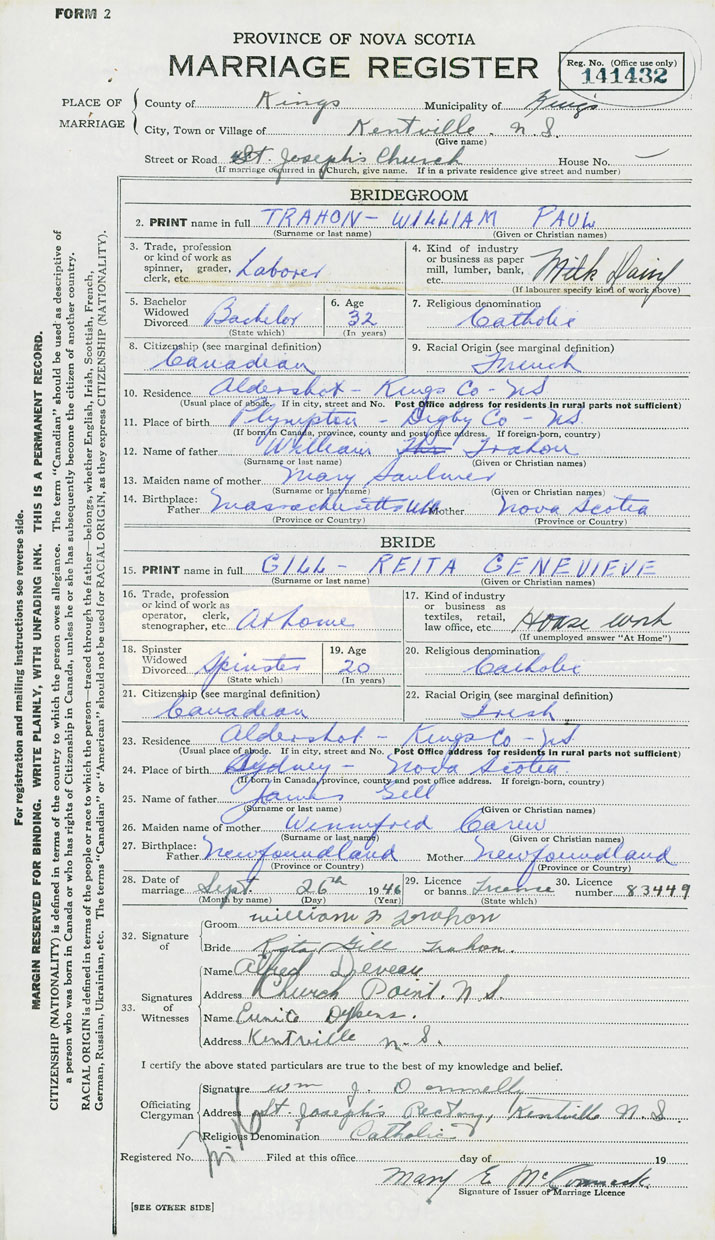 FORM 2
PROVINCE OF NOVA SCOTIA
MARRIAGE REGISTER
Reg. No. (Office use only)
141432
PLACE OF MARRIAGE
County of Kings Municipality of Kings
City, Town or Village of Kentville. N. S.
(Give name)
Street or Road St. Joseph's Church House No. —
(If marriage occurred in Church, give name. If in a private residence give street and number)
BRIDEGROOM
2. PRINT name in full TRAHON - WILLIAM PAUL
(Surname or last name) (Given or Christian names)
3. Trade, profession or kind of work as spinner, grader, clerk, etc. Laborer
4. Kind of industry or business as paper mill, lumber, bank, etc. Milk Dairy
(If labourer specify kind of work above)
5. Bachelor Widowed Divorced Bachelor
(State which)
6. Age 32
(In years)
7. Religious denomination Catholic
8. Citizenship (see marginal definition) Canadian
9. Racial Origin (see marginal definition) French
10. Residence Aldershot - Kings Co - NS
(Usual place of abode. If in city, street and No. Post Office address for residents in rural parts not sufficient)
11. Place of birth Plympton - Digby Co - NS.
(If born in Canada, province, county and post office address. If foreign-born, country)
12. Name of father William Trahon
(Surname or last name) (Given or Christian names)
13. Maiden name of mother Mary Saulnier
(Surname or last name) (Given or Christian names)
14. Birthplace: Father Massachusetts Mother Nova Scotia
(Province or Country) (Province or Country)
BRIDE
15. PRINT name in full GILL - REITA GENEVIEVE
(Surname or last name) (Given or Christian names)
16. Trade, profession or kind of work as operator, clerk, stenographer, etc. At home
17. Kind of industry or business as textiles, retail, law office, etc. House work
(If unemployed answer "At Home")
18. Spinster Widowed Divorced Spinster
(State which)
19. Age 20
(In years)
20. Religious denomination Catholic
21. Citizenship (see marginal definition) Canadian
22. Racial Origin (see marginal definition) Irish
23. Residence Aldershot - Kings Co - NS
(Usual place of abode. If in city, street and No. Post Office address for residents in rural parts not sufficient)
24. Place of birth Sydney - Nova Scotia.
(If born in Canada, province, county and post office address. If foreign-born, country)
25. Name of father James Gill
(Surname or last name) (Given or Christian names)
26. Maiden name of mother Winnifred Carew
(Surname or last name) (Given or Christian names)
27. Birthplace: Father Newfoundland Mother Newfoundland
(Province or Country) (Province or Country)
28. Date of marriage Sept. 26th 1946
(Month by name) (Day) (Year)
29. Licence or banns License
(State which)
30. Licence number 83449
32. Signature of
Groom William P Trahon
Bride Rita Gill Trahon.
33. Signatures of Witnesses
Name Alfred Deveau
Address Church Point. N S.
Name Eunice Dykens.
Address Kentville N. S.
I certify the above stated particulars are true to the best of my knowledge and belief.
Officiating Clergyman
Signature Wm J. O Donnelly
Address St. Joseph's Rectory, Kentville N. S.
Religious Denomination Catholic
Registered No. Filed at this office day of 19
Mary E. McCormack.
Signature of Issuer of Marriage Licence
[SEE OTHER SIDE]
For registration and mailing instructions see reverse side.
MARGIN RESERVED FOR BINDING. WRITE PLAINLY, WITH UNFADING INK. THIS IS A PERMANENT RECORD.
CITIZENSHIP (NATIONALITY) is defined in terms of the country to which the person owes allegiance. The term "Canadian" should be used as descriptive of
a person who was born in Canada or who has rights of Citizenship in Canada, unless he or she has subsequently become the citizen of another country.
RACIAL ORIGIN is defined in terms of the people or race to which the person—traced through the father—belongs, whether English, Irish, Scottish, French,
German, Russian, Ukrainian, etc. The terms "Canadian" or "American" should not be used for RACIAL ORIGIN, as they express CITIZENSHIP (NATIONALITY).